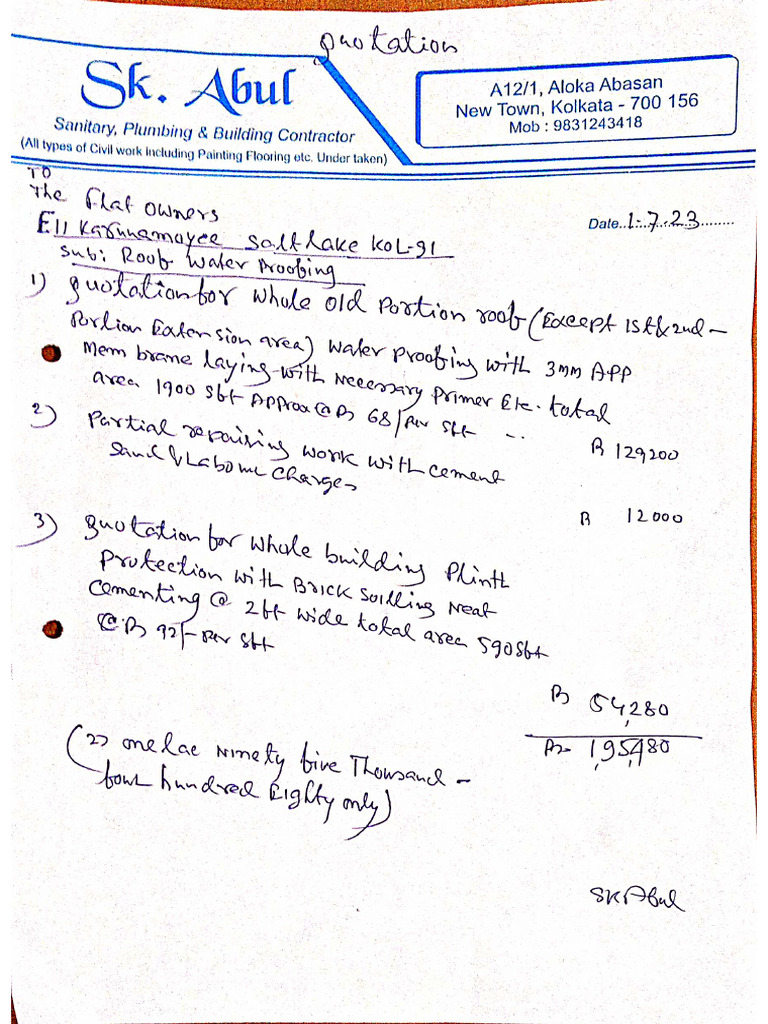 Quotation
Sk. Abul
Sanitary, Plumbing & Building Contractor
(All types of Civil work including Painting Flooring etc. Under taken)
A12/1, Aloka Abasan
New Town, Kolkata - 700 156
Mob : 9831243418
To
The Flat owners
E11 Karunamoyee Salt lake KOL-91
Date..1.7.23..........
Sub: Roof water Proofing
1) Quotation for whole old Portion roof (Except 1st & 2nd -
Portion Extension area) water proofing with 3mm APP
Membrane laying with necessary primer Etc. total
area 1900 sft Approx @ Rs 68/ per sft ..
Rs 129200
2) Partial repairing work with cement
sand & Labour charges
Rs 12000
3) Quotation for whole building Plinth
Protection with Brick soilling neat
cementing @ 2ft wide total area 590 sft
@ Rs 92/- per sft
Rs 54,280
Rs- 1,95,480
(Rs one lac Ninety five Thousand -
four hundred Eighty only)
SK Abul